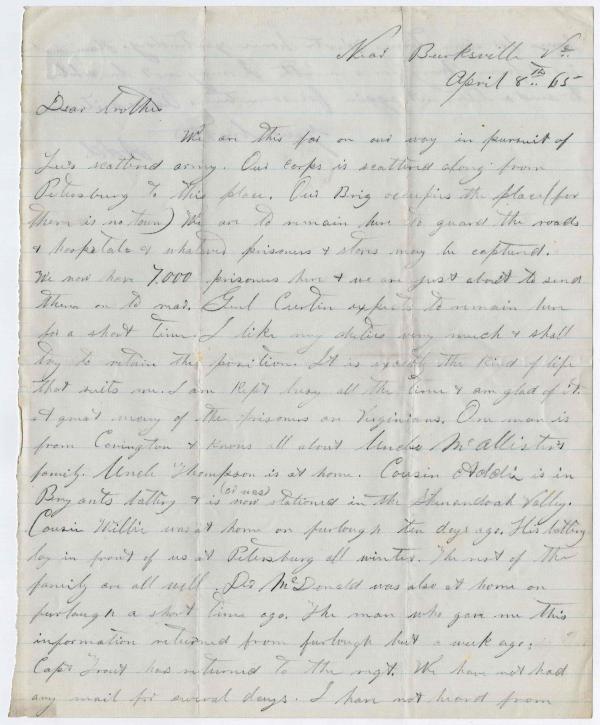 Near Burksville Va.
April 8th 65
Dear brother
We are this far on our way in pursuit of
Lee's scattered army. Our corps is scattered along from
Petersburg to this place. Our Brig occupies the place (for
there is no town) We are to remain here to guard the roads
& hospitals & whatever prisoners & stores may be captured.
We now have 7,000 prisoners here & we are just about to send
them on to rear. Genl Curtin expects to remain here
for a short time. I like my duties very much & shall
try to retain the position. It is exactly the kind of life
that suits me. I am kept busy all the time & am glad of it.
A great many of the prisoners are Virginians. One man is
from Covington & knows all about Uncle McAllister's
family. Uncle Thompson is at home. Cousin Addie is in
Bryants battery & is (or was) now stationed in the Shenandoah Valley.
Cousin Willie was at home on furlough ten days ago. His battery
lay in front of us at Petersburg all winter. The rest of the
family are all well. Dr McDonald was also at home on
furlough a short time ago. The man who gave me this
information returned from furlough but a week ago.
Capt has returned to the regt. We have not had
any mail for several days. I have not heard from